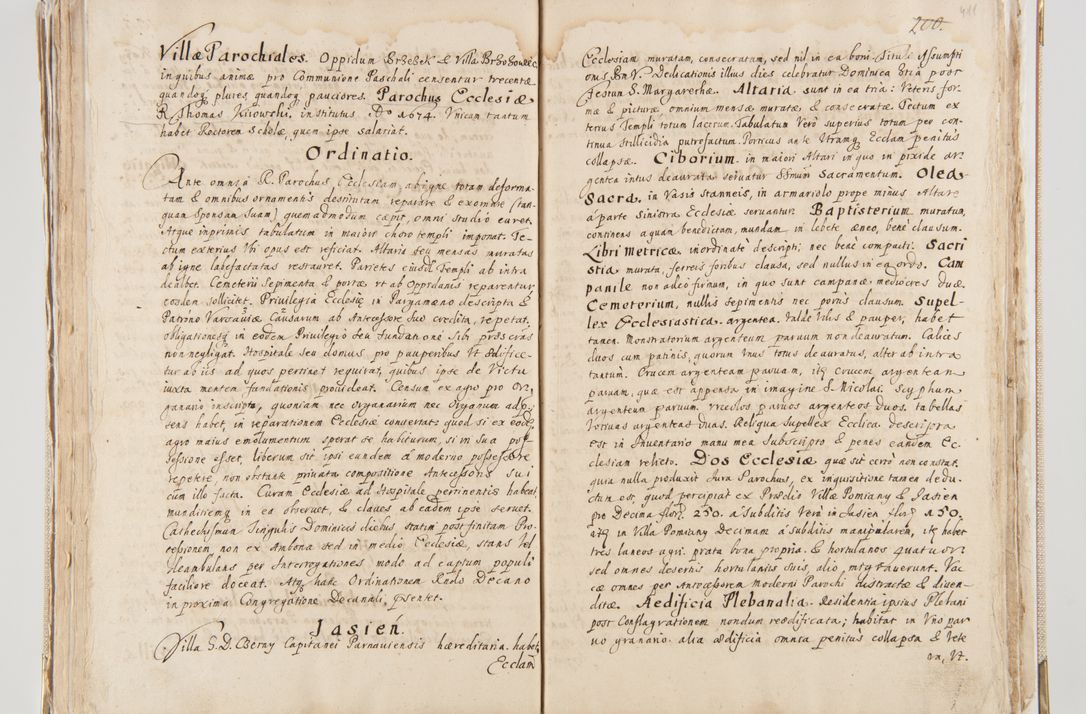 Villæ Parochiales. Oppidum Brzesk & Villa Brzozowiec
in quibus animæ pro Communione Paschali censentur trecentæ
quandoq plures, quandoq pauciores. Parochus Ecclesiæ
R. Thomas institutus Ao 1674. Unicum tantum
habet Rectorem Scholæ, quem ipse salariat.
Ordinatio.
Ante omnia R. Parochus, Ecclesiam, ab igne totam deforma-
tam & omnibus ornamentis destitutam reparire & exornare (tan-
quam Sponsam Suam) quemadmodum cæpit, omni studio curet,
Atque inprimis tabulatum in maiori choro templi imponat. Te-
ctum exterius Vbi opus est reficiat. Altaria seu mensas muratas
ab igne labefactatas restauret. Parietes eiusdem Templi ab intra
dealbet. Cemeterii Sepimenta & portæ vt ab Oppidanis reparentur
eosdem sollicitet. Privilegia Ecclesiæ in Pargameno descripta &
Patrono Causarum ab Antecessore Suo credita, repetat,
obligationesq in eodem Privilegio seu fundatione Sibi præscriptas
non negligat. Hospitale seu domus, pro pauperibus Vt ædifice-
tur ab iis ad quos pertinet requirat, quibus ipse de Victu
iuxta mentem fundationis provideat. Censum ex agro pro Or-
ganario inscripto, quoniam nec organarium nec Organum ad
sens habet, in reparationem Ecclesiæ conservat: quod si ex eodem
agro maius emolumentum sperat se habiturum, si in Sua pos-
sessione esset, liberum sit ipsi eundem à moderno possessore
repetere, non obstante privata compositione Antecessoris Sui
cum illo facta. Curam Ecclesiæ ad Hospitale pertinentis habeat,
munditiemq in ea observet, & claves ab eadem ipse servet.
Cathechismum Singulis Dominicis diebus, statim post finitam Pro-
cessionem non ex Ambona sed in medio Ecclesiæ, stans Vel
deambulans per Interrogationes modo ad captum populi
faciliore doceat. Atq hanc Ordinationem Rndo Decano
in proxima Congregatione Decanali, præsentet.
Jasień.
Villa G. D. Berny Capitanei Parnausensis hæreditaria. habet
Ecclam
200.
411
Ecclesiam muratam, consecratam, sed nil in ea boni. Tituli Assumpti
onis B.M.V. Dedicationis illius dies celebratur Dominica 3tia post
festum S. Margarethæ. Altaria sunt in ea tria: Veteris for-
mæ & picturæ, omnium mensæ muratæ & consecratæ. Tectum ex
terius Templi totum lacerum. Tabulatum Verò superius totum per con-
tinua stillicidia putrefactum. Porticus ante Utramq Ecclam penitus
collapsæ. Ciborium in maiori Altari in quo in pixide ar-
gentea intus deaurata servatur SSmum Sacramentum. Olea
Sacra, in Vasis stanneis, in armariolo prope minus Altare
à parte sinistra Ecclesiæ servantur. Baptisterium muratum,
continens aquam benedictam, mundam in lebete æneo, benè clausum.
Libri Metricæ inordinatè descripti, nec bene compacti. Sacri
stia murata, ferreis foribus clausa, sed nullus in ea ordo. Cam
panile non adeò firmum, in quo sunt campanæ mediocres Duæ.
Cemeterium, nullis sepimentis nec portis clausum. Supel-
lex Ecclesiastica argentea. Valde Vilis & pauper, habet
tamen Monstratorium argenteum parvum non deauratum. Calices
duos cum patinis, quorum Vnus totus deauratus, alter ab intra
tantum. Crucem argenteam parvam, itq crucem argenteam
parvam, quæ est appensa in imagine S. Nicolai. Scyphum
argenteum parvum. Vrceolos parvos argenteos duos, tabellas
Votivas argenteas duas. Reliqua supellex Ecclica descripta
est in Inventario manu mea Subscripto & penes eandem Ec-
clesiam relicto. Dos Ecclesiæ quæ sit certò non constat,
quia nulla produxit Jura Parochus, ex inquisitione tamen dedu-
ctum est, quod percipiat ex Prædio Villæ Pomiany & Jasien
pro Decima flor. 250. a Subditis Verò in Jasien flor. 150.
itq in Villa Pomiany Decimam a Subditis manipularem, itq habet
tres laneos agri, prata bona propria, & hortulanos quatuor
sed omnes desertis hortulaniis suis, alio migraverunt. Vac
cæ omnes per Antecessorem Moderni Parochi distractæ & diven-
ditæ. Aedificia Plebanalia. Residentia ipsius Plebani
post Conflagrationem nondum reædificata; habitat in Vno par
vo granario. alia ædificia omnia penitus collapsa & Vete
ra, Vt.